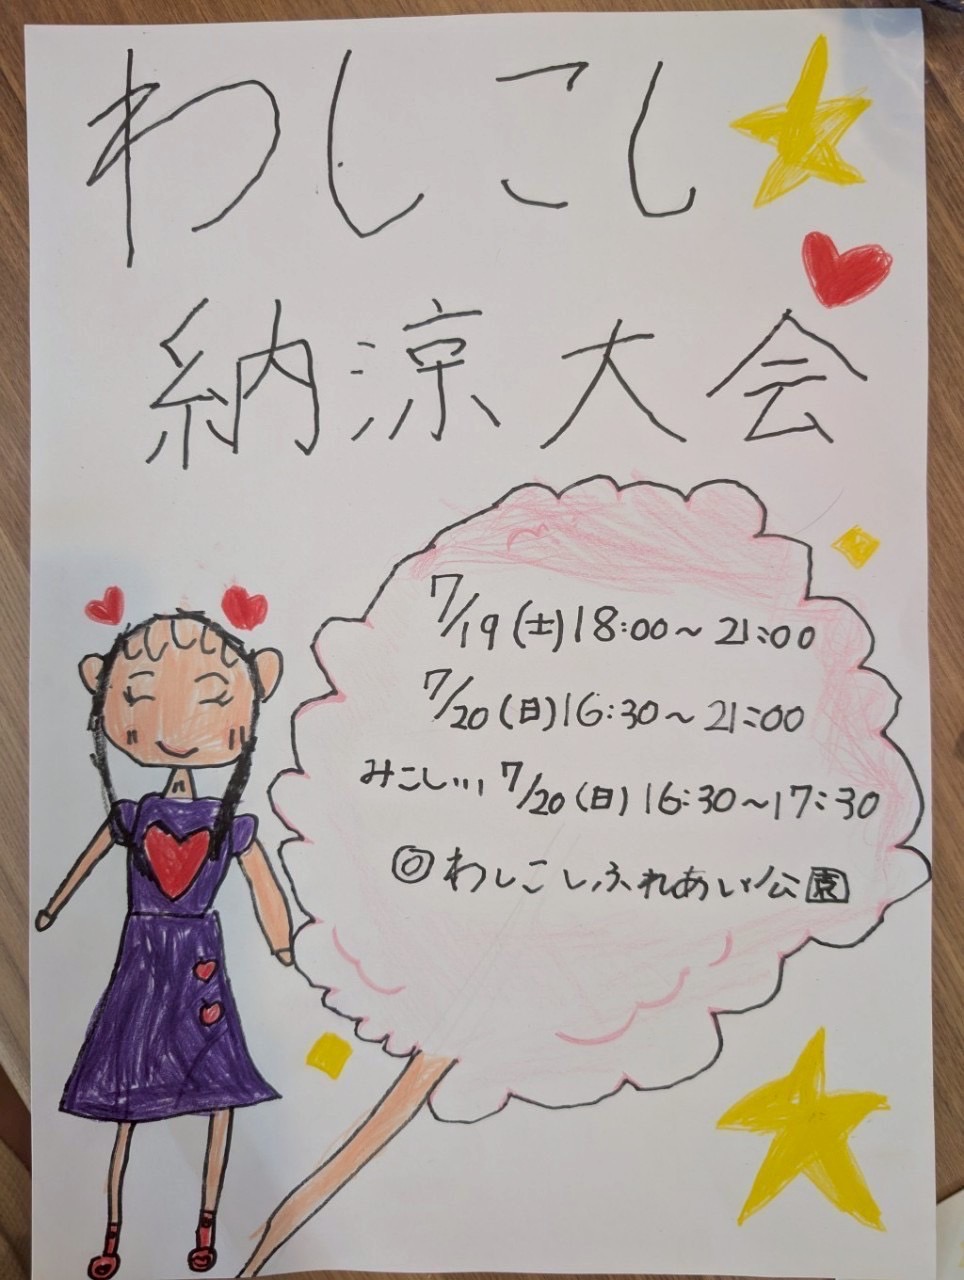 わしこし
納涼大会
7/19(土)18:00～21:00
7/20(日)16:30～21:00
みこし…7/20(日)16:30～17:30
◎わしこしふれあい公園